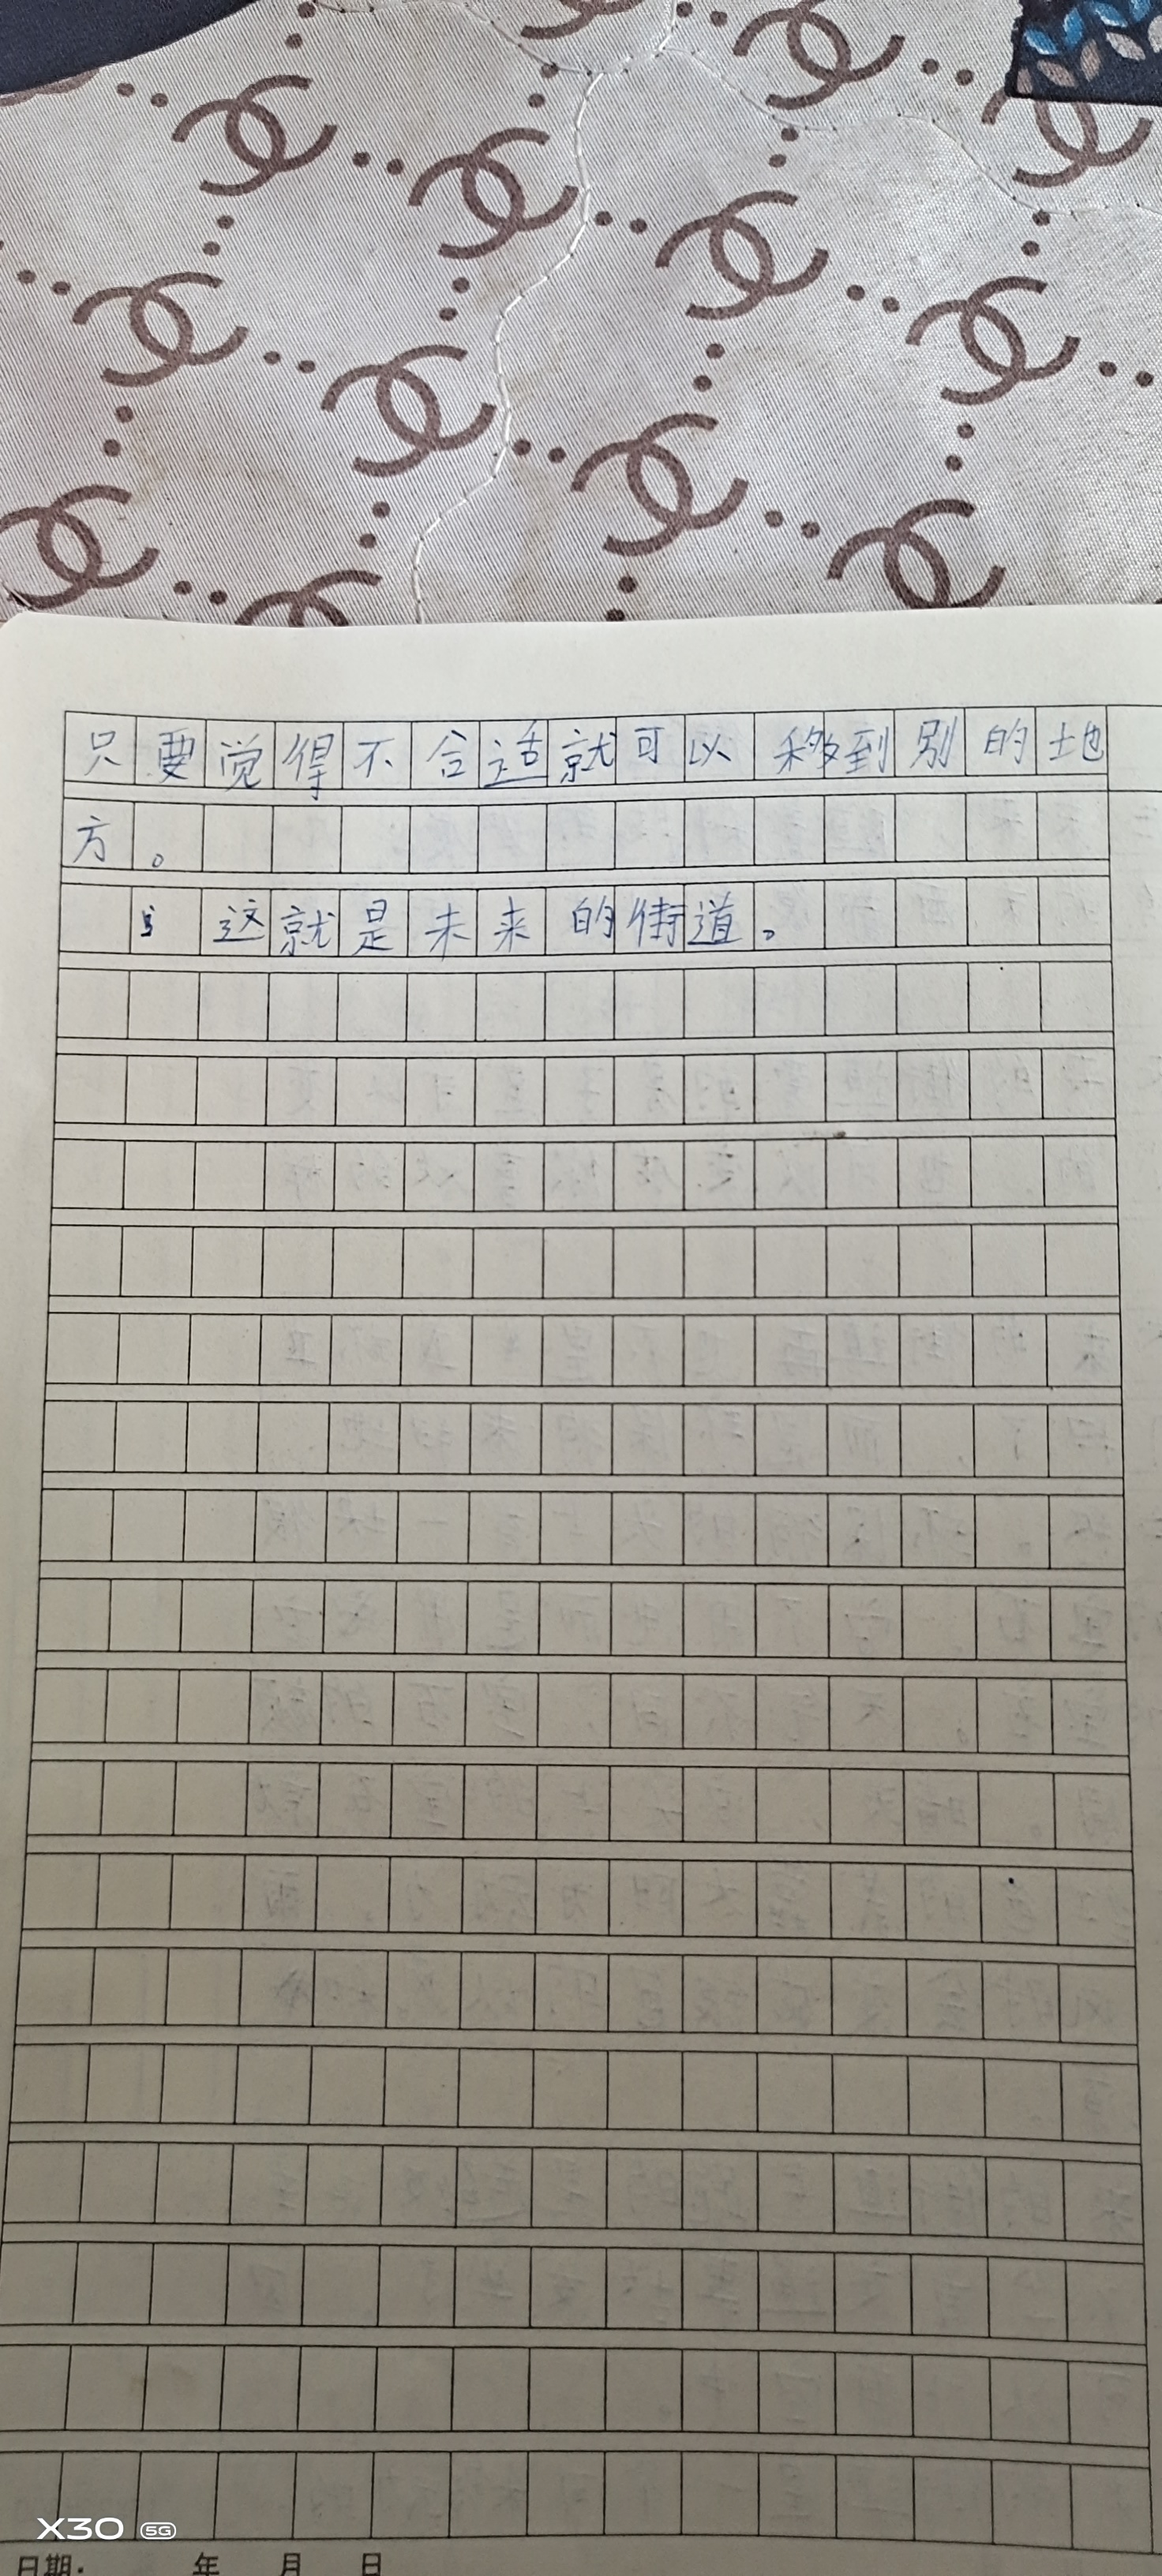 只要觉得不合适就可以移到别的地
方。
这就是未来的街道。
X30 5G
日期: 年 月 日